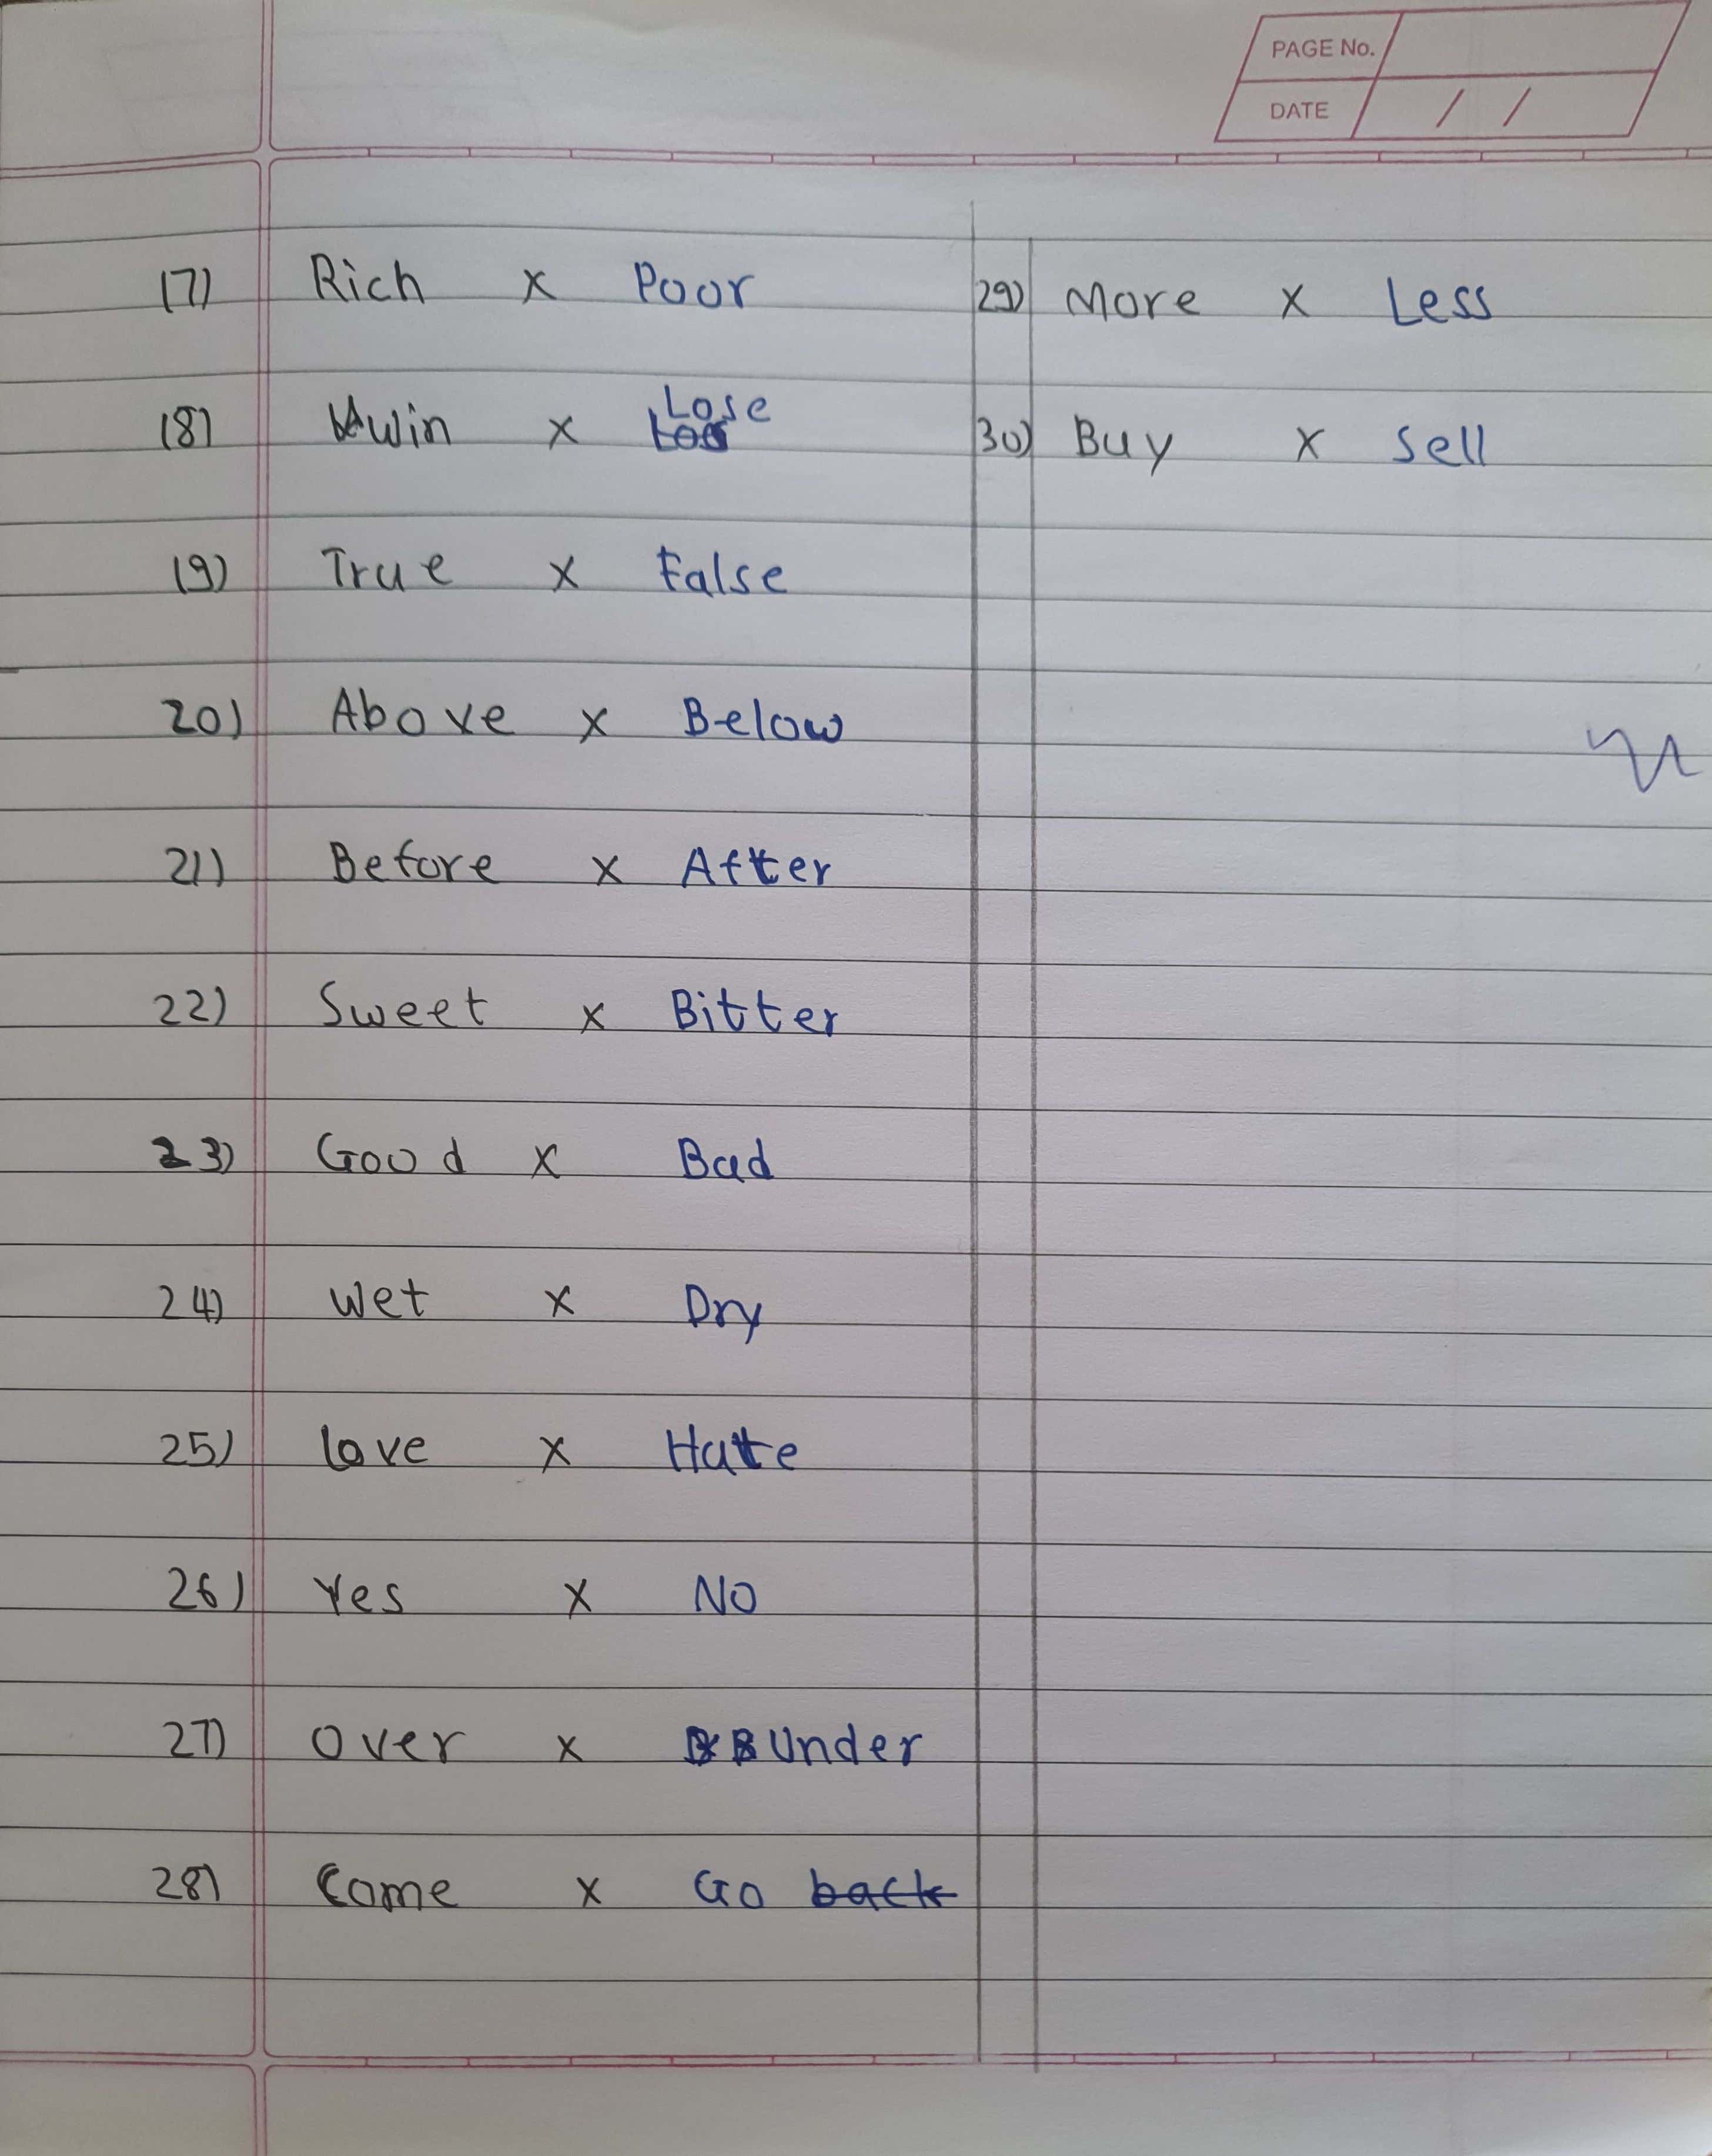 PAGE No.
DATE / /
17) Rich x Poor
18) Win x Lose
19) True x False
20) Above x Below
21) Before x After
22) Sweet x Bitter
23) Good x Bad
24) Wet x Dry
25) Love x Hate
26) Yes x NO
27) Over x Under
28) Come x Go back
29) More x Less
30) Buy x Sell